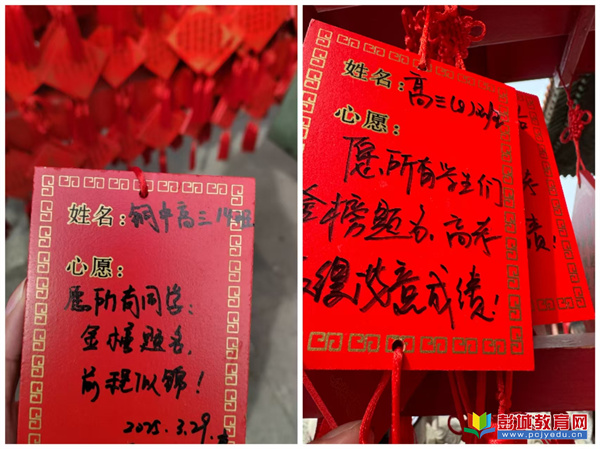 姓名：铜中高三14班
心愿：
愿所有同学：
金榜题名，
前程似锦！
2025.3.29.
姓名：高三(8)班
心愿：
愿所有学生们
金榜题名、高考
取得满意成绩！
绩！
彭城教育网
www.pcjyedu.cn